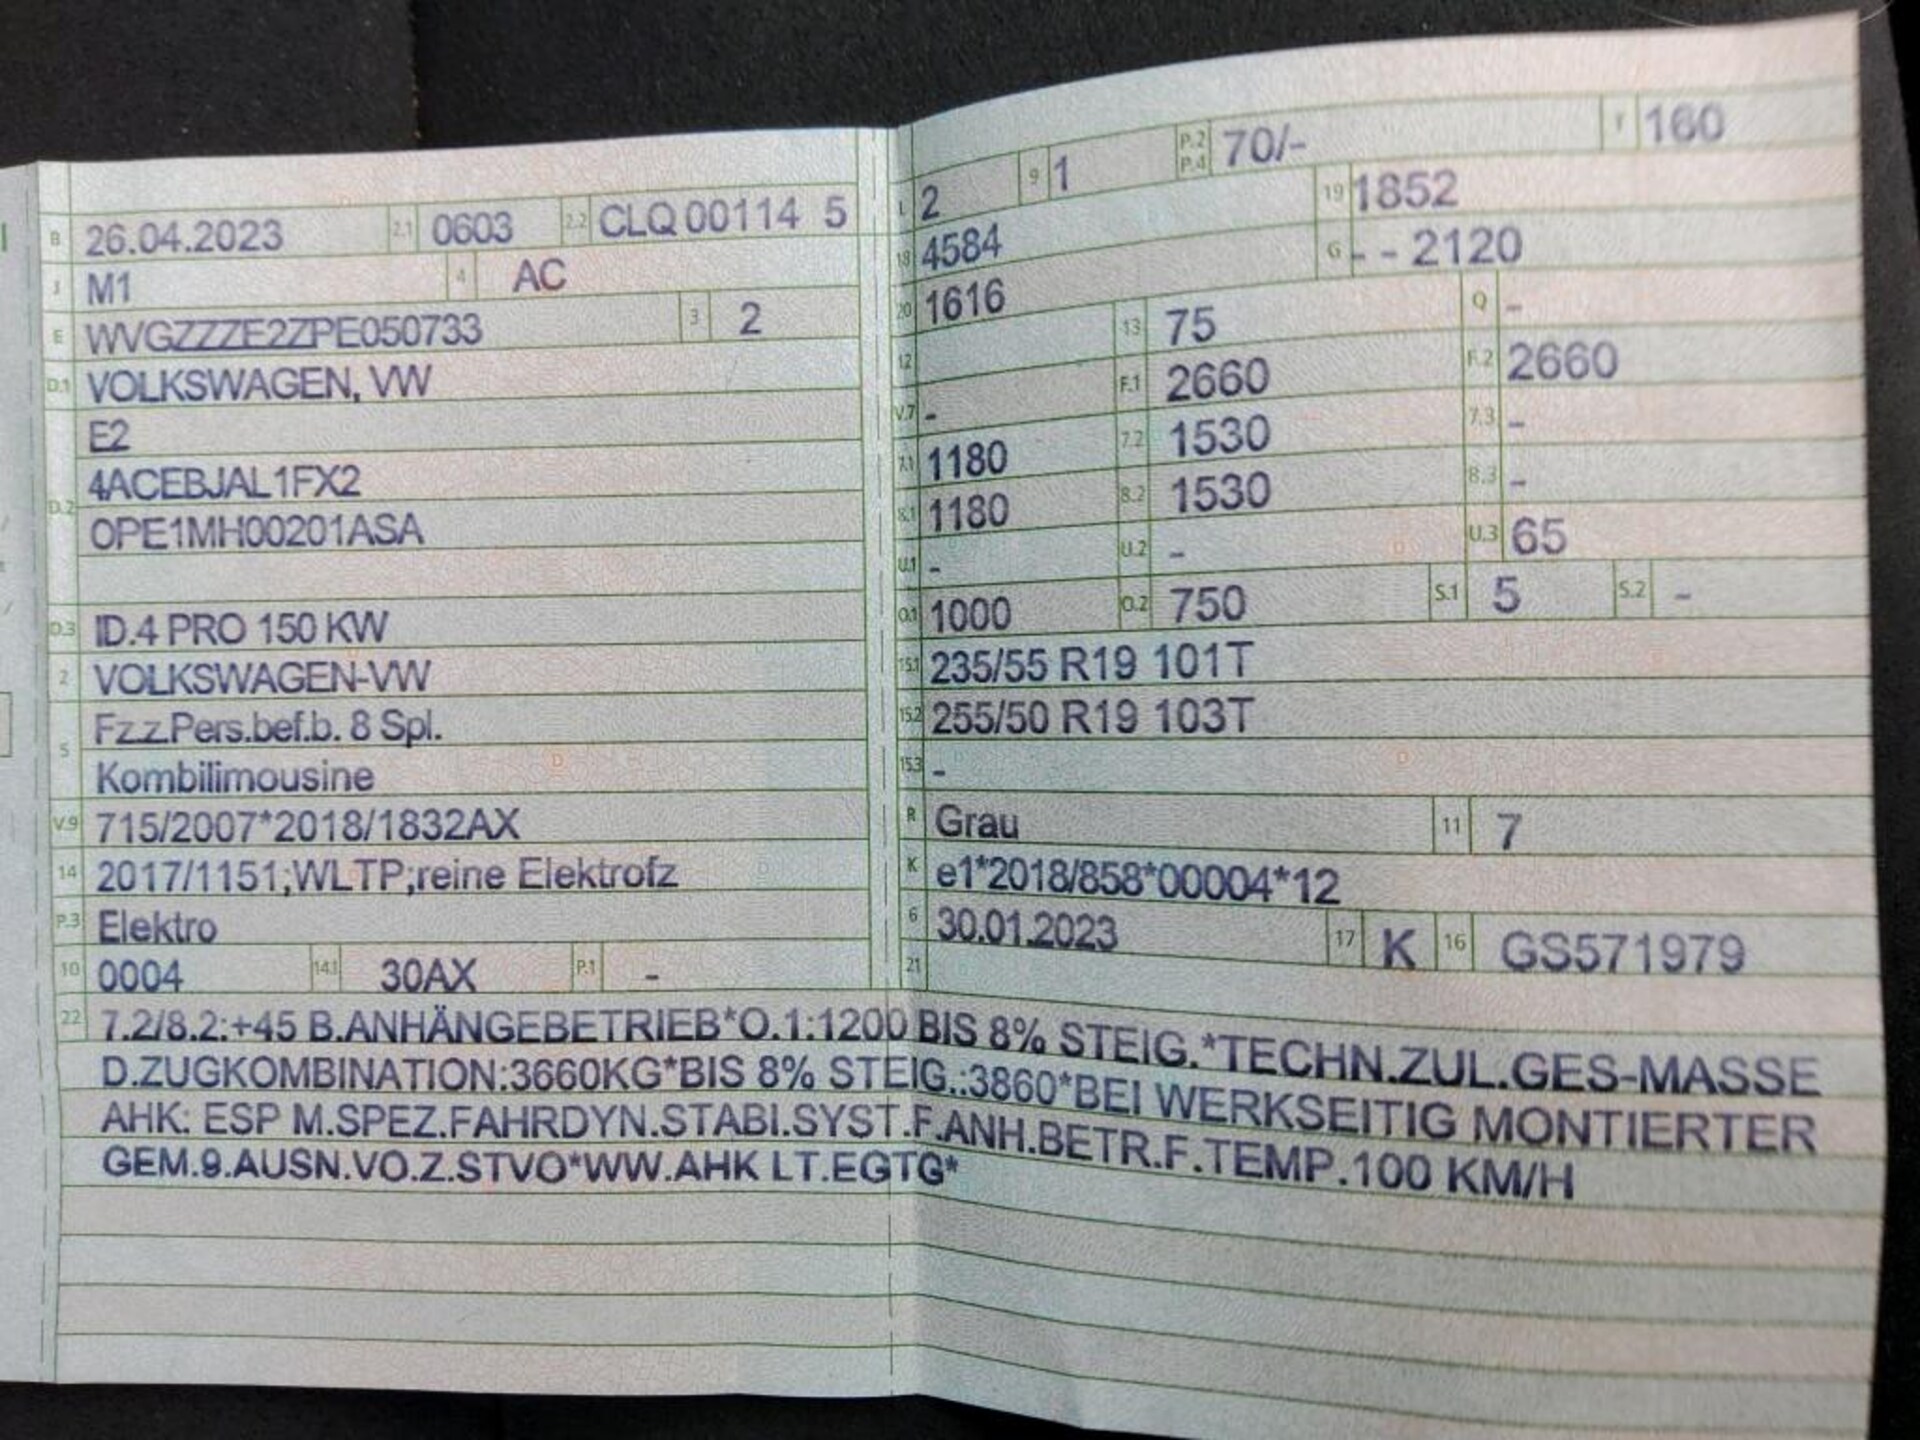 B 26.04.2023 2.1 0603 2.2 CLQ 00114 5
J M1 4 AC
E WVGZZZE2ZPE050733 3 2
D.1 VOLKSWAGEN, VW
E2
D.2 4ACEBJAL1FX2
OPE1MH00201ASA
D.3 ID.4 PRO 150 KW
2 VOLKSWAGEN-VW
5 Fz.z.Pers.bef.b. 8 Spl.
Kombilimousine
V.9 715/2007*2018/1832AX
14 2017/1151;WLTP;reine Elektrofz
P.3 Elektro
10 0004 14.1 30AX P.1 -
L 2 9 1 P.2 P.4 70/- T 160
18 4584 19 1852
20 1616 G - - 2120
12 13 75 Q -
V.7 - F.1 2660 F.2 2660
7.1 1180 7.2 1530 7.3 -
8.1 1180 8.2 1530 8.3 -
U.1 - U.2 - U.3 65
O.1 1000 O.2 750 S.1 5 S.2 -
15.1 235/55 R19 101T
15.2 255/50 R19 103T
15.3 -
R Grau 11 7
K e1*2018/858*00004*12
6 30.01.2023 17 K 16 GS571979
21
22 7.2/8.2:+45 B.ANHÄNGEBETRIEB*O.1:1200 BIS 8% STEIG.*TECHN.ZUL.GES-MASSE
D.ZUGKOMBINATION:3660KG*BIS 8% STEIG.:3860*BEI WERKSEITIG MONTIERTER
AHK: ESP M.SPEZ.FAHRDYN.STABI.SYST.F.ANH.BETR.F.TEMP.100 KM/H
GEM.9.AUSN.VO.Z.STVO*WW.AHK LT.EGTG*